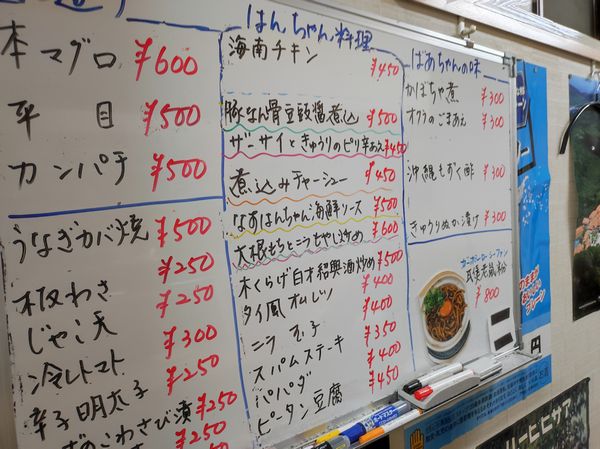 本マグロ ¥600
平目 ¥500
カンパチ ¥500
うなぎカバ焼 ¥500
板わさ ¥250
じゃこ天 ¥250
冷しトマト ¥300
辛子明太子 ¥250
こわさび漬 ¥250
¥250
はんちゃん料理
海南チキン ¥450
豚なん骨豆豉醤煮込 ¥500
ザーサイときゅうりのピリ辛あえ ¥450
煮込みチャーシュー ¥450
なすはんちゃん海鮮ソース ¥500
大根もちとニラもやし炒め ¥600
木くらげ白才紹興酒炒め ¥500
タイ風オムレツ ¥400
ニラ玉子 ¥400
スパムステーキ ¥350
パパダ ¥400
ピータン豆腐 ¥450
ばあちゃんの味
かぼちゃ煮 ¥300
オクラのごまあえ ¥300
沖縄もずく酢 ¥300
きゅうりぬか漬け ¥300
¥800